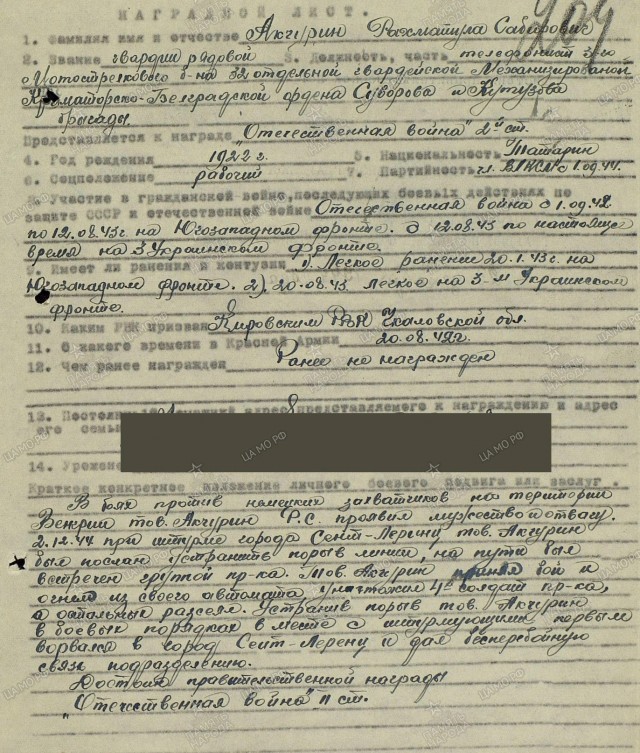 НАГРАДНОЙ ЛИСТ.
1. Фамилия имя и отчество Акчурин Рахматула Сабирович
2. Звание гвардии рядовой 3. Должность, часть телефонист 3го
Мотострелкового б-на 32 отдельной гвардейской Механизированной
Краматорско-Белградской ордена Суворова и Кутузова
бригады.
Представляется к награде "Отечественная война" 2й ст.
4. Год рождения 1922 г. 5. Национальность Татарин
6. Соцположение рабочий 7. Партийность чл. ВЛКСМ с 1.09.44.
8. Участие в гражданской войне, последующих боевых действиях по
защите СССР и отечественной войне Отечественная война с 1.09.42
по 12.08.43г. на Югозападном фронте. с 12.08.43 по настоящее
время на 3 Украинском фронте.
9. Имеет ли ранения и контузии 1). Легкое ранение 20.1.43г. на
Югозападном фронте. 2). 20.08.43. легкое на 3-м Украинском
фронте.
10. Каким РВК призван Кировским РВК Чкаловской обл.
11. С какого времени в Красной Армии 20.08.42г.
12. Чем ранее награжден Ранее не награжден
13. адрес представляемого к награждению и адрес
его семьи
14.
Краткое конкретное изложение личного боевого подвига или заслуг.
В боях против немецких захватчиков на територии
Венгрии тов. Акчурин Р.С. проявил мужество и отвагу.
2.12.44 при штурме города Сент-Леринц тов. Акчурин
был послан устранить порыв линии, на пути был
встречен группой пр-ка. Тов. Акчурин принял бой и
огнем из своего автомата уничтожил 4х солдат пр-ка,
а остальных рассеял. Устранив порыв тов. Акчурин
в боевых порядках вместе с штурмующими первым
ворвался в город и дал бесперебойную
связь подразделению.
Достоин правительственной награды
"Отечественная война" II ст.
ЦАМО.РФ